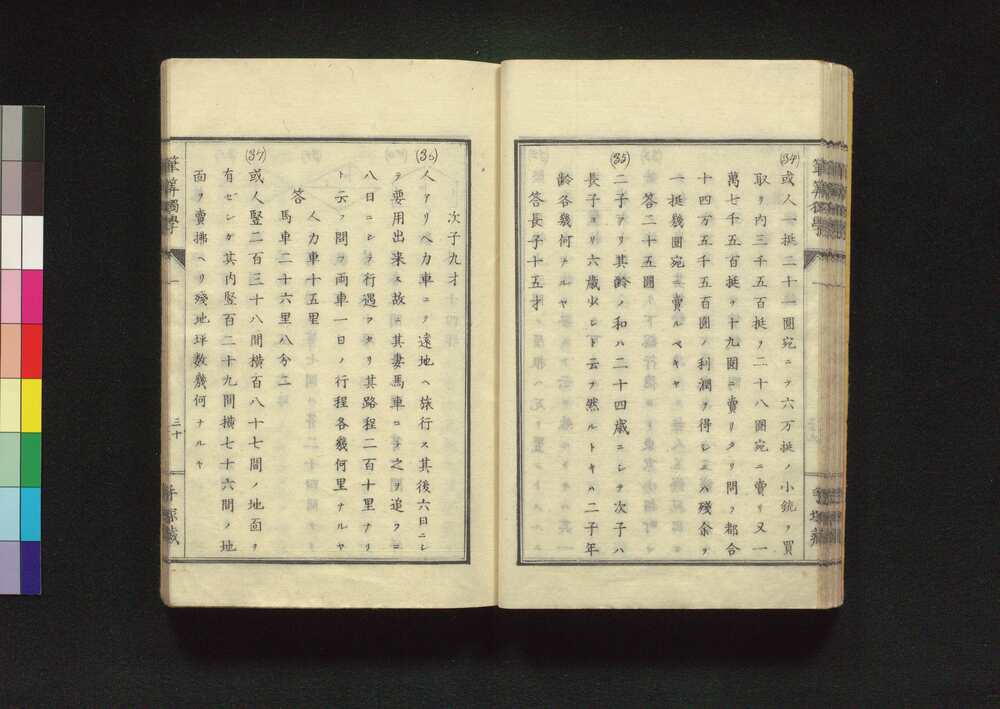 (34)
或人一挺二十一圓宛ニテ六万挺ノ小銃ヲ買
取リ内三千五百挺ヲ二十八圓宛ニ賣リ又一
萬七千五百挺ヲ十九圓ニ賣リタリ問フ都合
十四万五千五百圓ノ利潤ヲ得シニハ殘余ヲ
一挺幾圓宛ニ賣ルベキヤ
答二十五圓
(35)
二子アリ其齢ノ和ハ二十四歳ニシテ次子ハ
長子ヨリ六歳少シト云フ然ルトキハ二子年
齢各幾何ナルヤ
答長子十五才
次子九才
(36)
人アリ人力車ニテ遠地ヘ旅行ス其後六日ニシ
テ要用出来ス故ニ其妻馬車ニテ之ヲ追フニ
八日ニシテ行遇フタリ其路程二百十里ナリ
ト云フ問フ両車一日ノ行程各幾何里ナルヤ
答
人力車十五里
馬車二十六里八分二
(37)
或人竪二百三十八間横百八十七間ノ地面ヲ
有セシガ其内竪百二十九間横七十六間ノ地
面ヲ賣拂ヘリ殘地坪数幾何ナルヤ
筆算獨學
三十